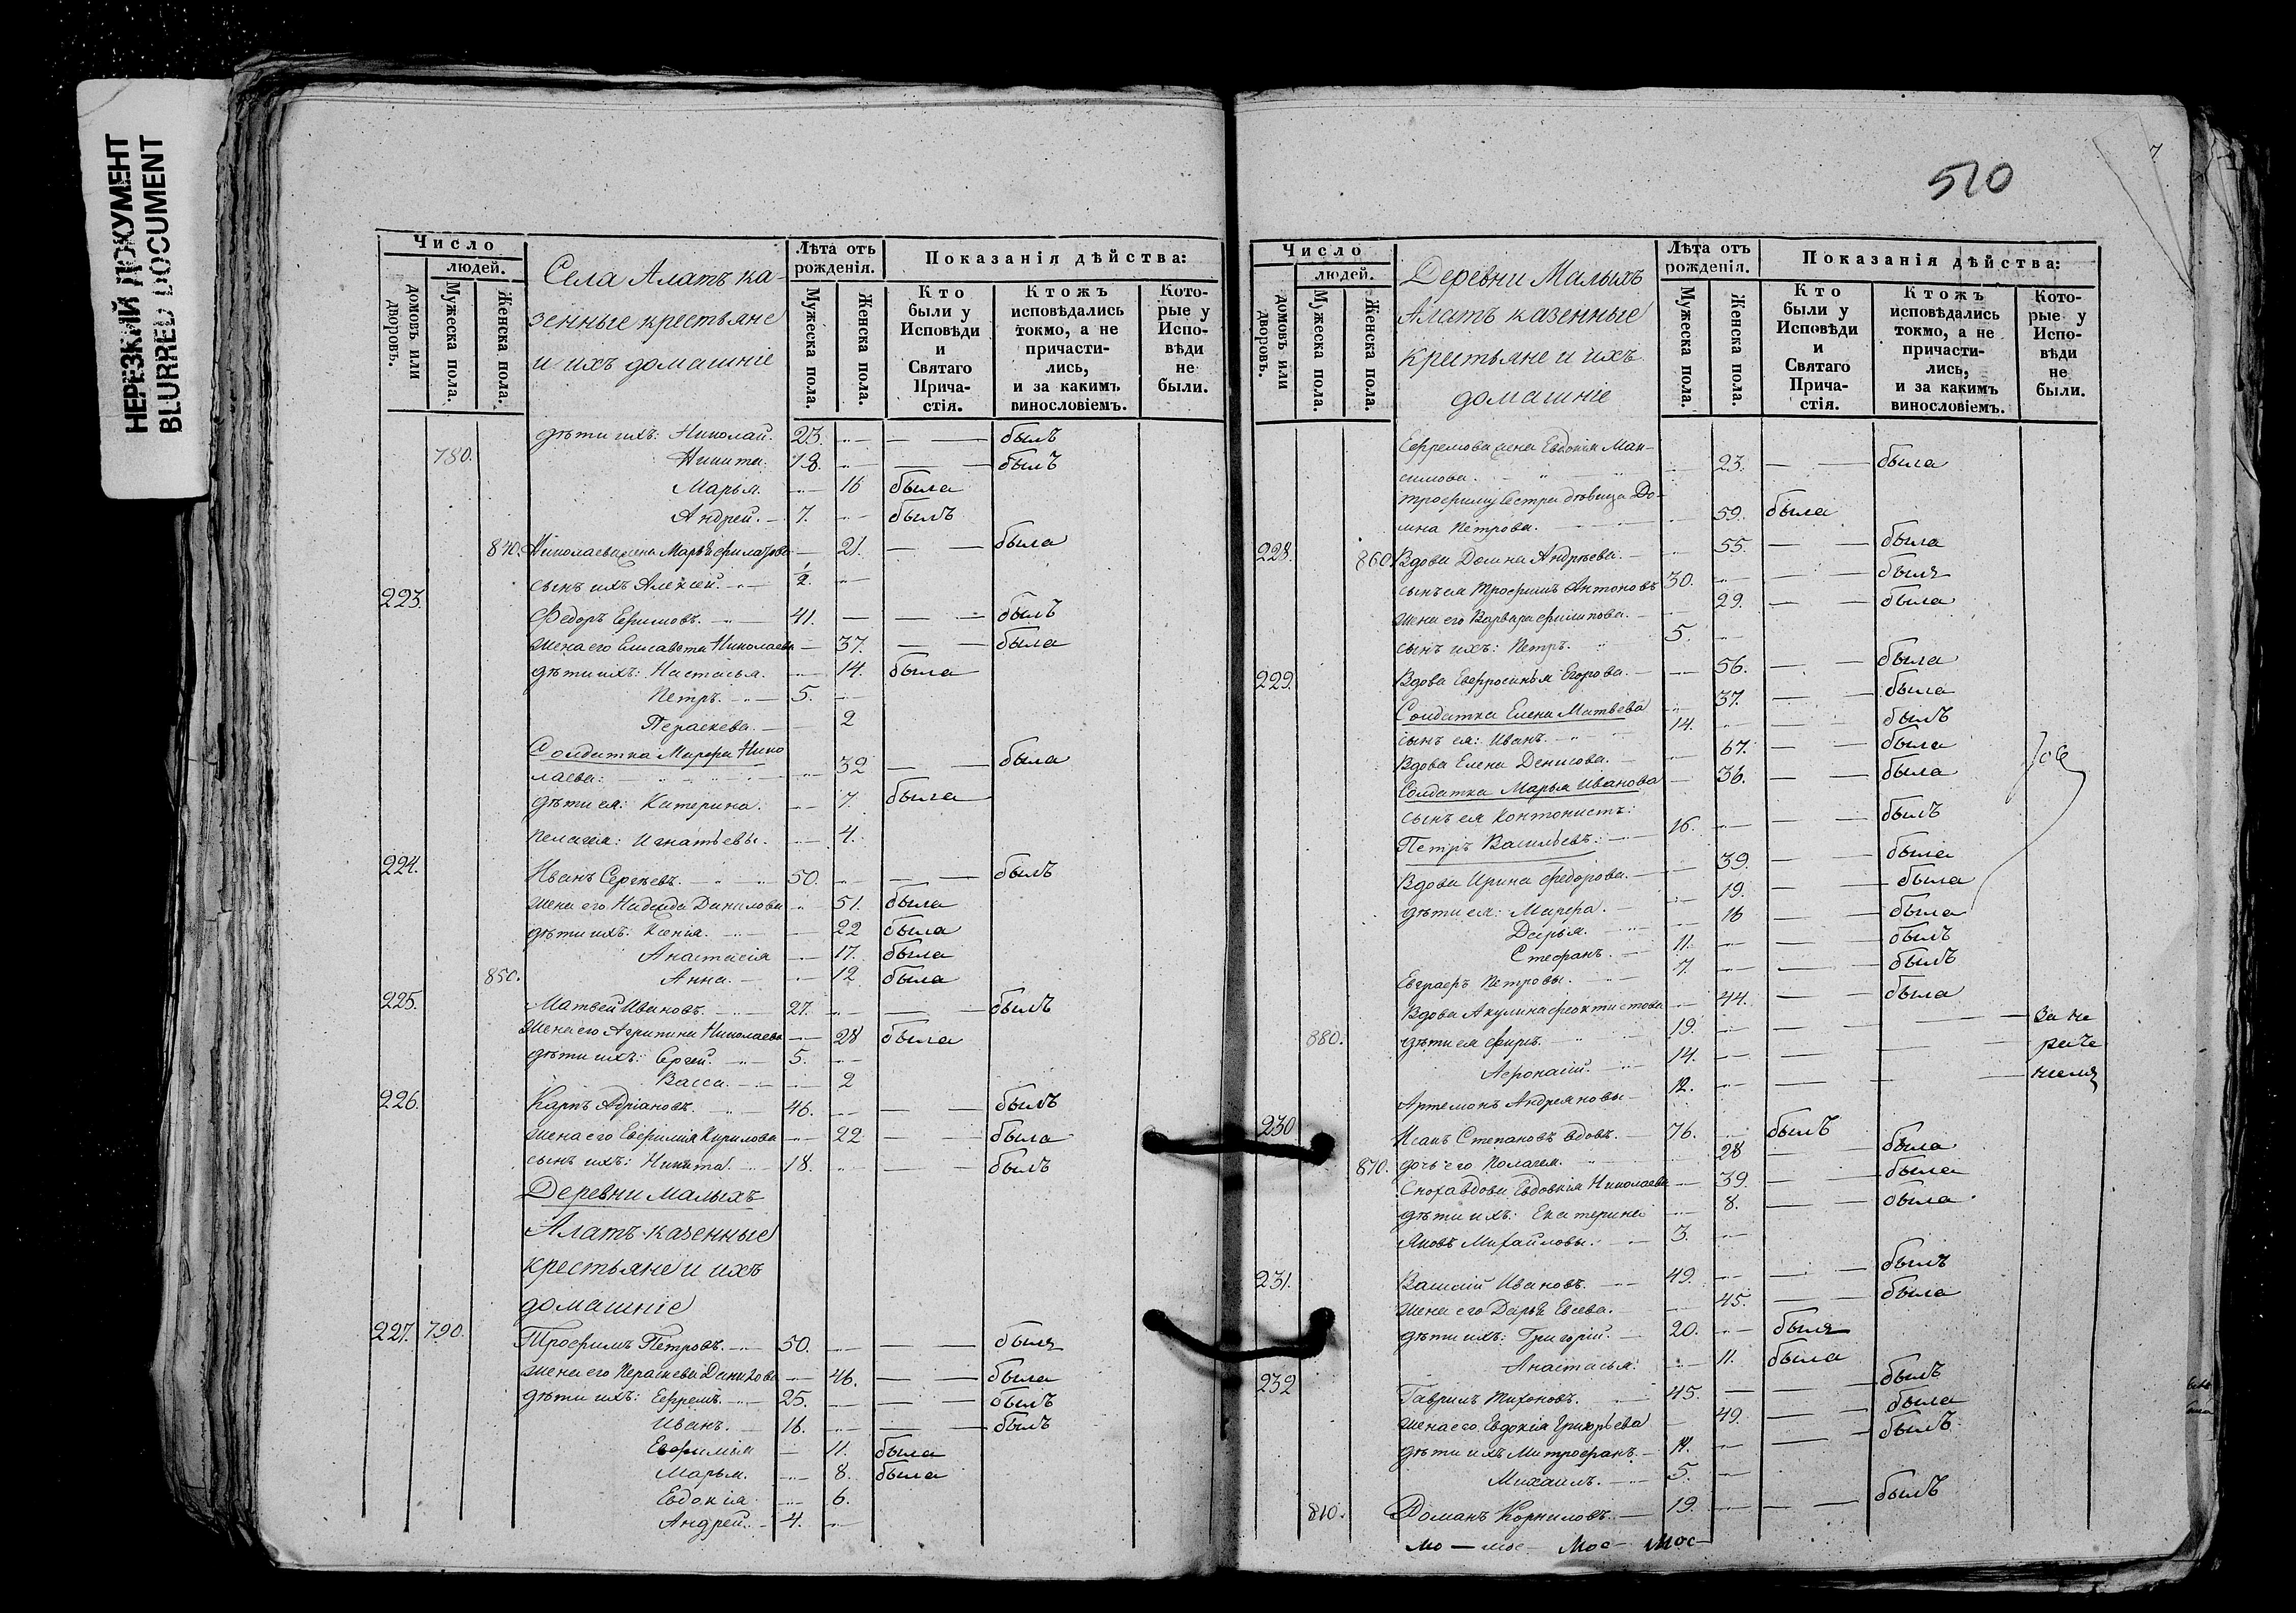 НЕРЕЗКИЙ ДОКУМЕНТ
BLURRED DOCUMENT
Число
людей.
домовъ или дворовъ.
Мужеска пола.
Женска пола.
Села Алатъ ка-
зенные крестьяне
и ихъ домашніе
Лѣта отъ рожденія.
Мужеска пола.
Женска пола.
Показанія дѣйства:
Кто были у Исповѣди и Святаго Прича-стія.
Ктожъ исповѣдались токмо, а не причасти-лись, и за какимъ винословіемъ.
Кото-рые у Испо-вѣди не были.
дѣти ихъ: Николай. 23. былъ
780. Никита. 18. былъ
Марья. 16 была
Андрей. 7. былъ
840. Николаева жена Марья Филатова 21. была
сынъ ихъ Алексѣй. 1/2.
223. Федоръ Ефимовъ. 41. былъ
жена его Елисавета Николаева 37. была
дѣти ихъ: Настасья. 14. была
Петръ. 5.
Параскева. 2
Солдатка Марфа Нико
лаева: 32 была
дѣти ея: Катерина. 7. была
Пелагея: Игнатьевы. 4.
224. Иванъ Сергѣевъ. 50. былъ
жена его Надежда Данилова 51. была
дѣти ихъ: Ксенія. 22 была
Анастасія 17. была
850. Анна. 12 была
225. Матвей Ивановъ. 27. былъ
жена его Агрипина Николаева 28 была
дѣти ихъ: Сергей. 5.
Васса. 2
226. Карпъ Адріановъ. 46. былъ
жена его Евфимія Кирилова 22 была
сынъ ихъ: Никита. 18. былъ
Деревни Малыхъ
Алатъ казенные
крестьяне и ихъ
домашніе
227. 790. Трофимъ Петровъ. 50. былъ
жена его Параскева Данилова 46. была
дѣти ихъ: Ефремъ. 25. былъ
Иванъ. 16. былъ
Евфимія 11. была
Марья. 8. была
Евдокія 6.
Андрей. 4.
510
Число
людей.
домовъ или дворовъ.
Мужеска пола.
Женска пола.
Деревни Малыхъ
Алатъ казенные
крестьяне и ихъ
домашніе
Лѣта отъ рожденія.
Мужеска пола.
Женска пола.
Показанія дѣйства:
Кто были у Исповѣди и Святаго Прича-стія.
Ктожъ исповѣдались токмо, а не причасти-лись, и за какимъ винословіемъ.
Кото-рые у Испо-вѣди не были.
Ефремова жена Евдокія Мак-
симова. 23. была
Трофиму сестра дѣвица До-
мна Петрова. 59. была
228. 860. Вдова Домна Андрѣева. 55. была
сынъ ея Трофимъ Антоновъ 30. былъ
жена его Варвара Филипова. 29. была
сынъ ихъ: Петръ. 5.
229. Вдова Евфросинья Егорова. 56. была
Солдатка Елена Матвѣева 37. была
сынъ ея: Иванъ. 14. былъ
Вдова Елена Денисова. 67. была
Солдатка Марья Иванова 36. была
сынъ ея Контонистъ:
Петръ Васильевъ: 16. былъ
Вдова Ирина Федорова. 39. была
дѣти ея: Марфа. 19. была
Дарья. 16 была
Стефанъ. 11. былъ
Евграфъ Петровы. 7. былъ
Вдова Акулина Феоктистова 44. была
880. дѣти ея Фиръ. 19. За не
Афонасій. 14. раче
Артемонъ Андреяновы 12. ніемъ
230 Исакъ Степановъ вдовъ. 76. былъ
870. дочь его Пелагея. 28 была
Сноха вдова Евдокія Николаева 39. была
дѣти ихъ: Екатерина 8. была
Яковъ Михайловы. 3.
231. Василій Ивановъ. 49. былъ
жена его Дарья Евсева. 45. была
дѣти ихъ: Григорій. 20. былъ
Анастасья. 11. была
232 Гаврилъ Тихоновъ. 45. былъ
жена его Евдокія Григорьева 49. была
дѣти ихъ Митрофанъ. 14. былъ
Михаилъ. 5.
810. Романъ Корниловъ. 19. былъ
мо — мос — мос — мос —